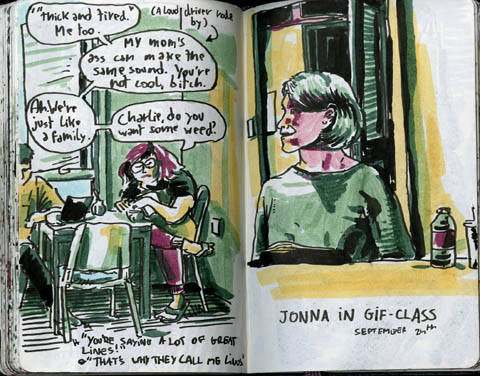 "Thick and tired."
Me too.
(A loud driver rode
by)
My mom's
ass can make the
same sound. You're
not cool, bitch.
Ah. We're
just like
a family.
Charlie, do you
want some weed?
"You're saying a lot of great
lines!"
"That's why they call me Lines"
JONNA IN GIF-CLASS
SEPTEMBER 24th